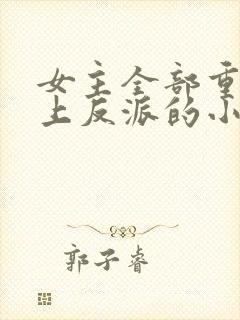 女主全部重
上反派的小
郭子睿